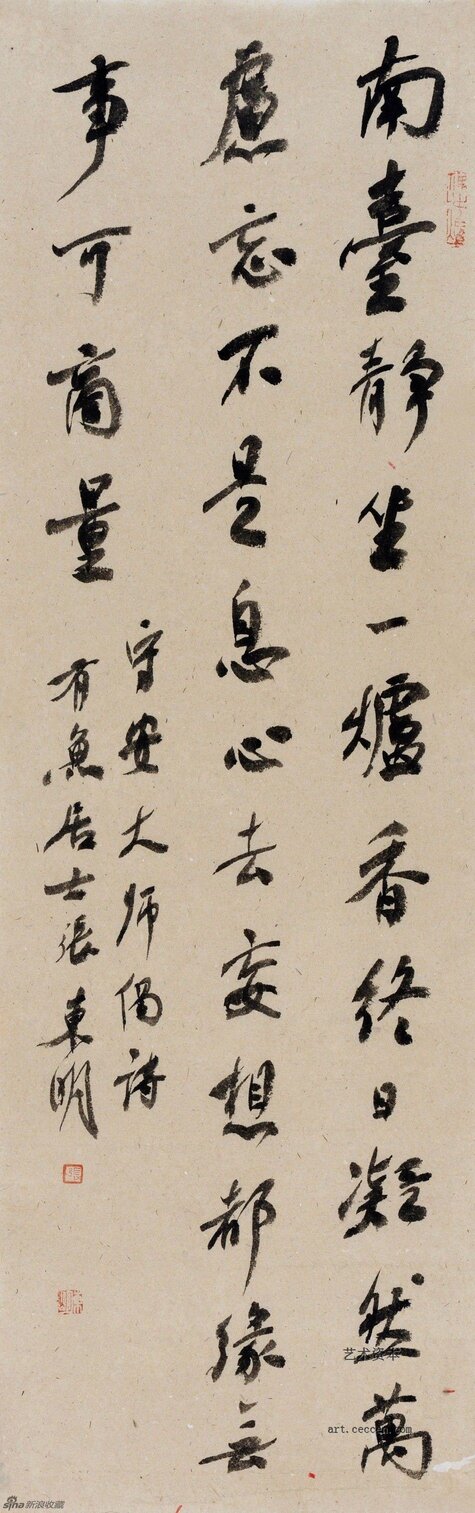 南臺靜坐一爐香終日凝然萬
慮忘不是息心去妄想都緣無
事可商量
守安大師偈詩
有魚居士張東明
張
艺术资本
art.ceccen.com
sina新浪收藏